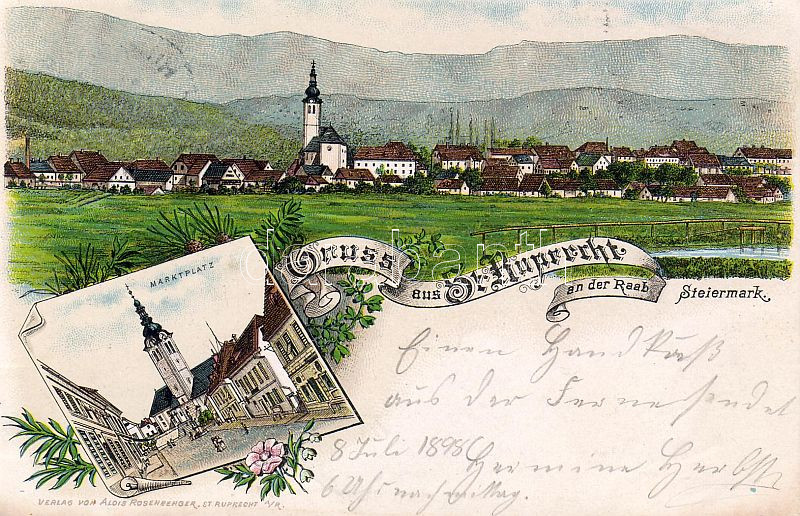 MARKTPLATZ
Gruss
aus St. Ruprecht
an der Raab
Steiermark.
Einen Handkuß
aus der Ferne sendet
8 Juli 1898 Hermine Herbst
6 Uhr nachmittag.
VERLAG VON ALOIS ROSENBERGER, ST. RUPRECHT A/R.